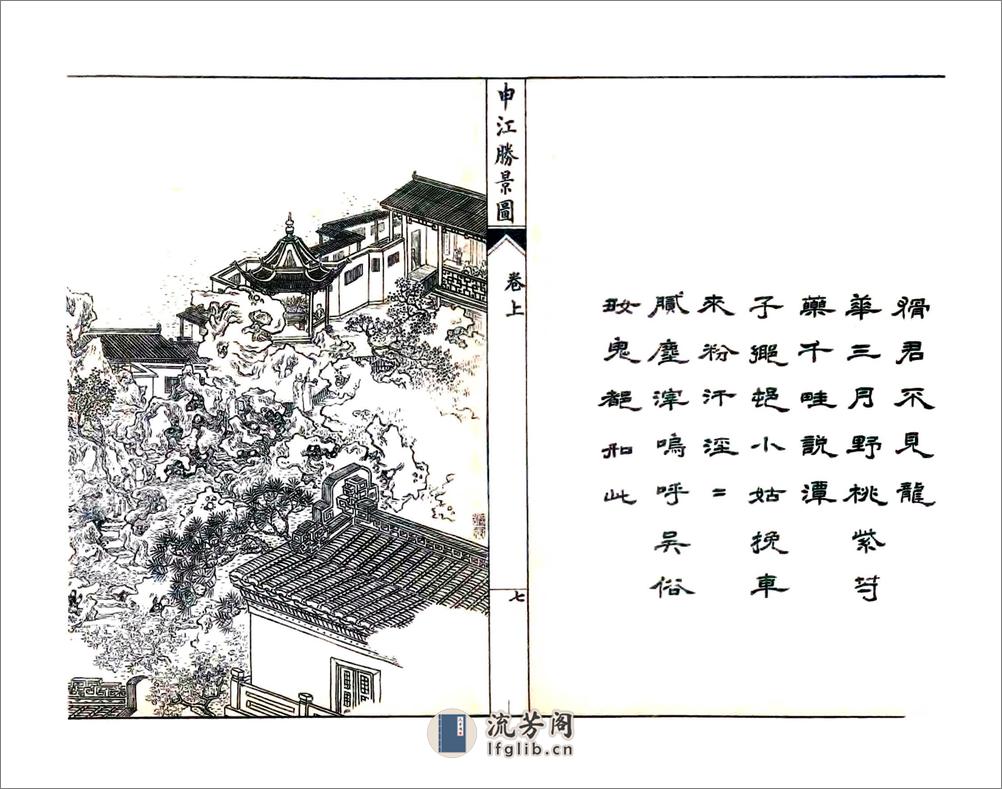 申江勝景圖
卷上
七
君不見龍
華三月野桃紫芍
藥千畦說潭
子小姑挽車
來粉汗淫=
膩塵滓嗚呼吳俗
鬼都如此
流芳阁
lfglib.cn